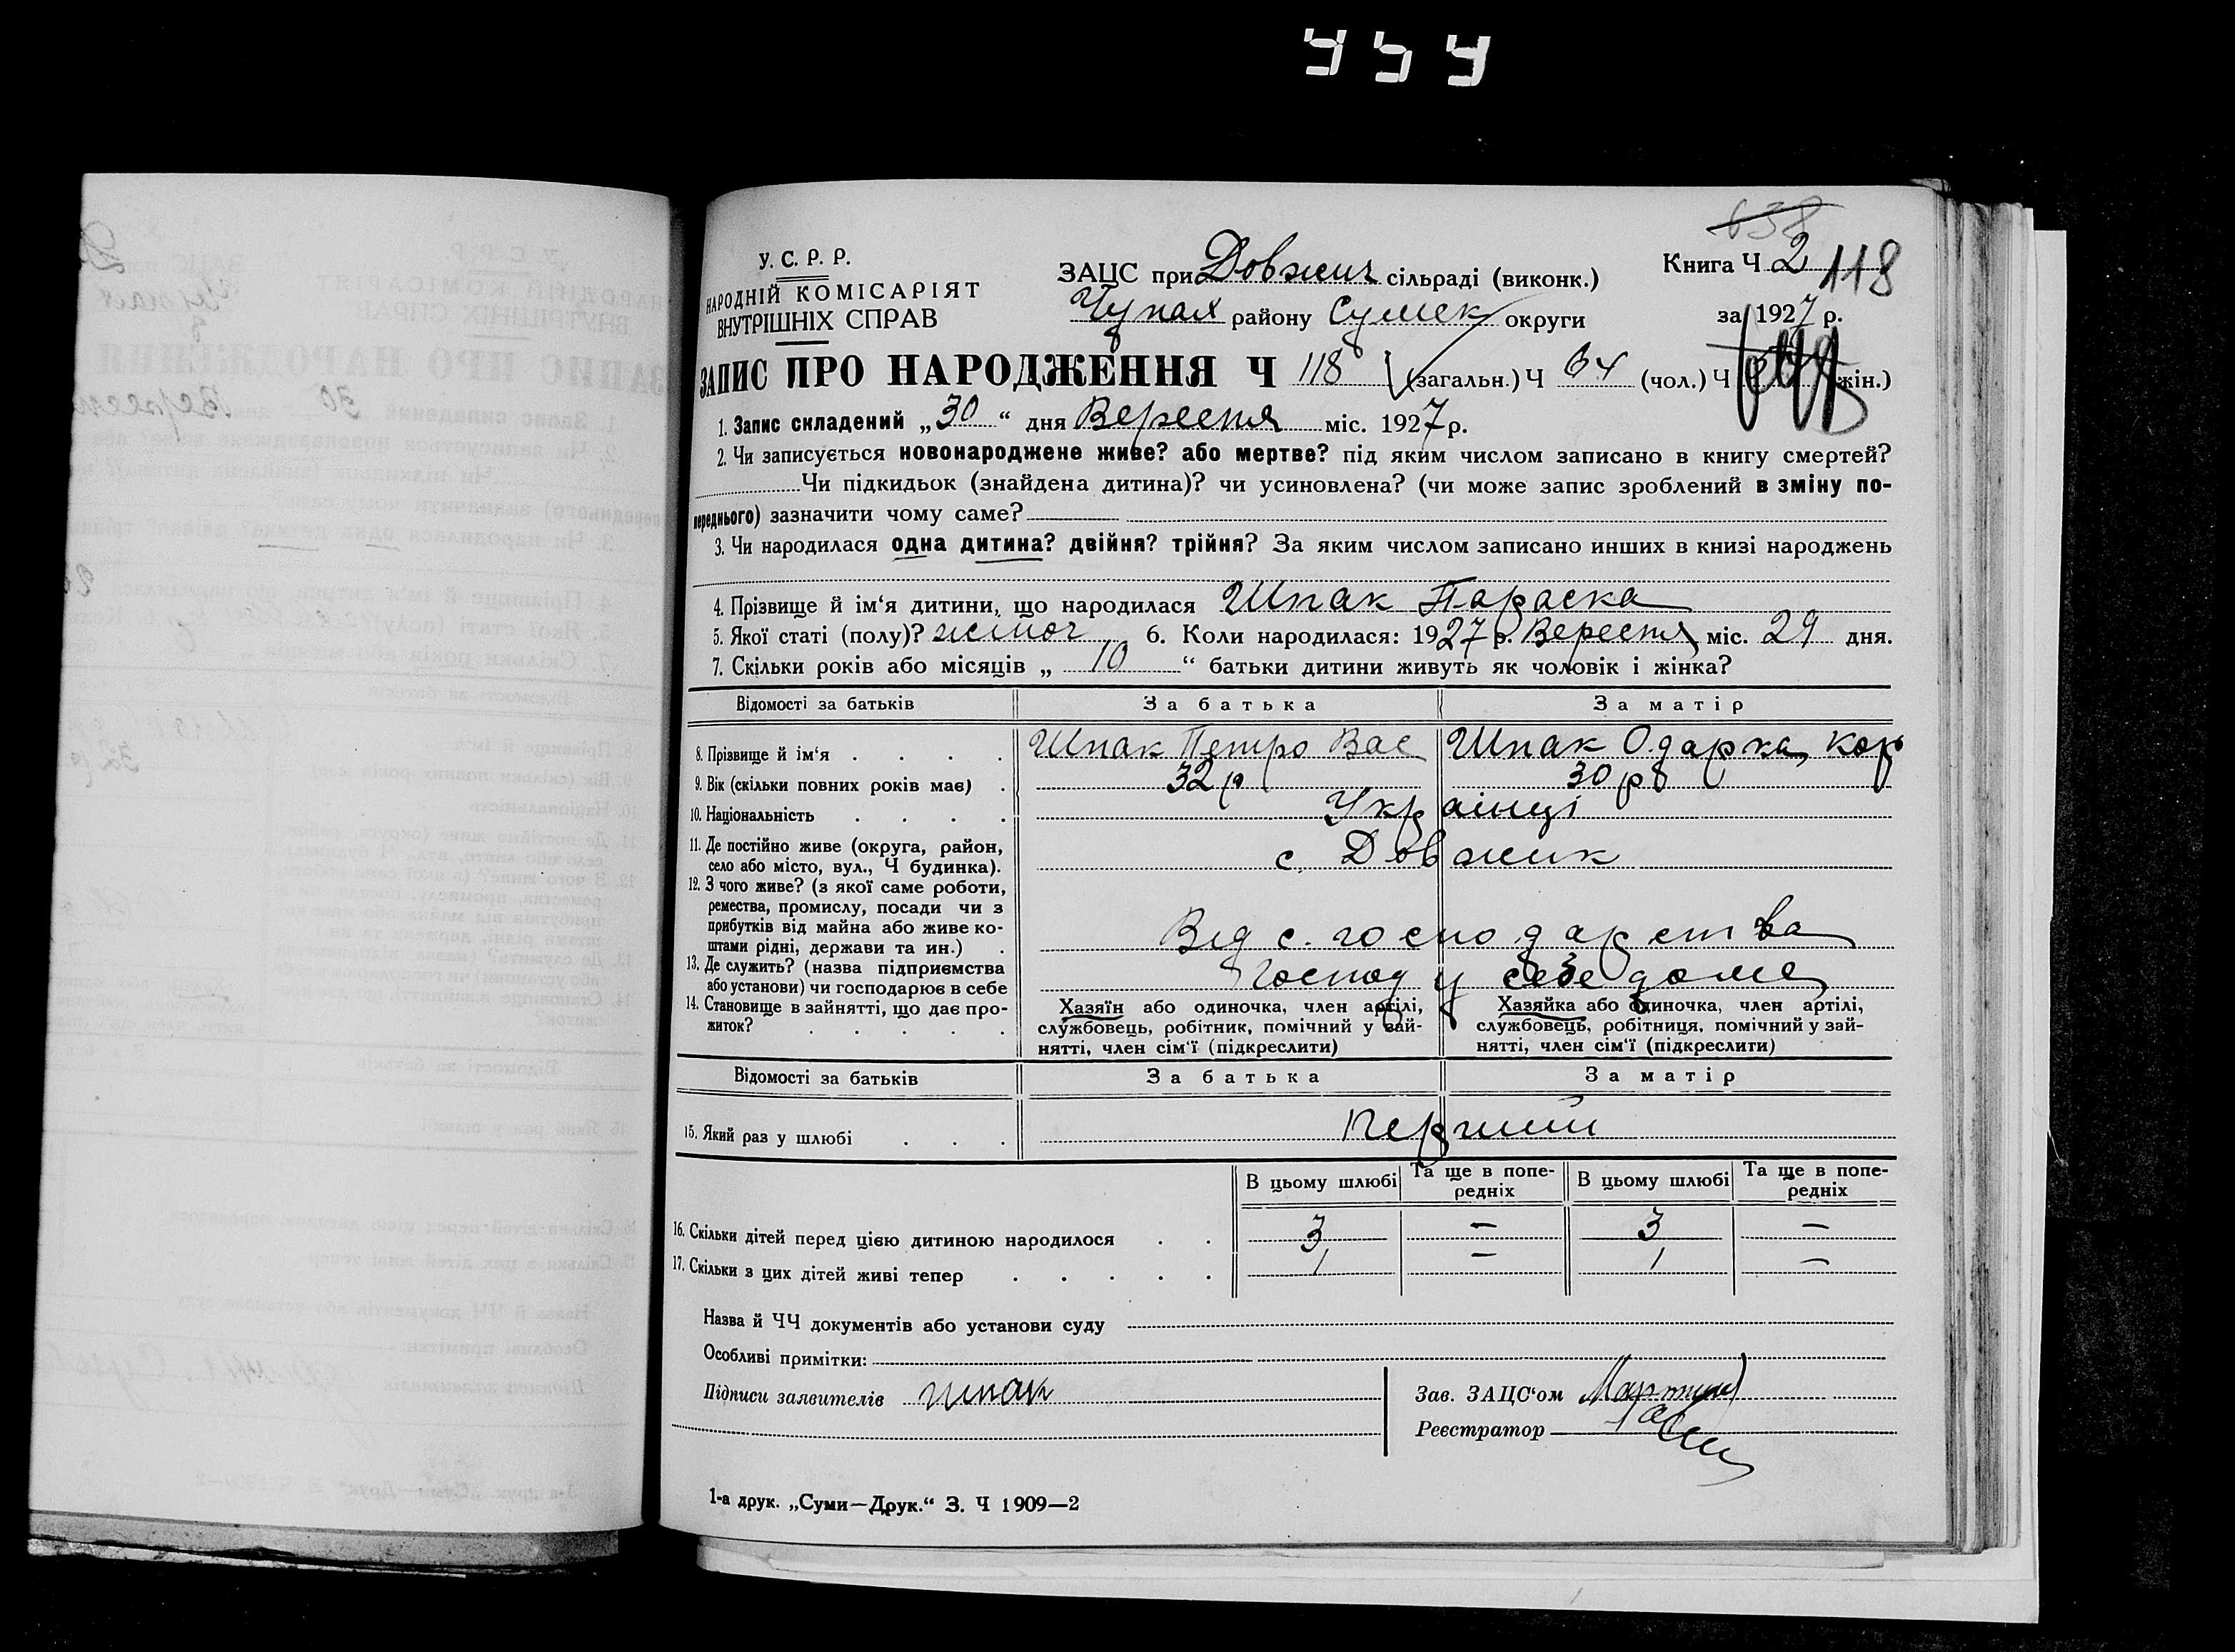 У. С. Р. Р.
НАРОДНІЙ КОМІСАРІЯТ
ВНУТРІШНІХ СПРАВ
ЗАЦС при Довжич сільраді (виконк.)
Чупах району Сумськ округи
638
Книга Ч 2
118
за 1927 р.
ЗАПИС ПРО НАРОДЖЕННЯ Ч 118 (загальн.) Ч 64 (чол.) Ч (жін.)
1. Запис складений „30“ дня Вересня міс. 1927 р.
2. Чи записується новонароджене живе? або мертве? під яким числом записано в книгу смертей?
Чи підкидьок (знайдена дитина)? чи усиновлена? (чи може запис зроблений в зміну по-
переднього) зазначити чому саме?
3. Чи народилася одна дитина? двійня? трійня? За яким числом записано инших в книзі народжень
4. Прізвище й ім‘я дитини, що народилася Шпак Параска
5. Якої статі (полу)? жіноч 6. Коли народилася: 1927 р. Вересня міс. 29 дня.
7. Скільки років або місяців „ 10 “ батьки дитини живуть як чоловік і жінка?
Відомості за батьків За батька За матір
8. Прізвище й ім‘я . . . . Шпак Петро Вас Шпак Одарка Кор
9. Вік (скільки повних років має) . 32 р 30 р
10. Національність . . . . Українці
11. Де постійно живе (округа, район,
село або місто, вул., Ч будинка). с. Довжик
12. З чого живе? (з якої саме роботи,
ремества, промислу, посади чи з
прибутків від майна або живе ко-
штами рідні, держави та ин.) . Від с. господарства
13. Де служить? (назва підприємства
або установи) чи господарює в себе Господ у себе дома
14. Становище в зайнятті, що дає про-
житок? . . . . .
Хазяїн або одиночка, член артілі,
службовець, робітник, помічний у зай-
нятті, член сім‘ї (підкреслити)
Хазяйка або одиночка, член артілі,
службовець, робітниця, помічний у зай-
нятті, член сім‘ї (підкреслити)
Відомості за батьків За батька За матір
15. Який раз у шлюбі . . . Перший
В цьому шлюбі Та ще в попе-редніх В цьому шлюбі Та ще в попе-редніх
16. Скільки дітей перед цією дитиною народилося . . 3 — 3 —
17. Скільки з цих дітей живі тепер . . . . . 1 — 1 —
Назва й ЧЧ документів або установи суду
Особливі примітки:
Підписи заявителів Шпак
Зав. ЗАЦС‘ом
Реєстратор
1-а друк. „Суми—Друк.“ З. Ч 1909—2